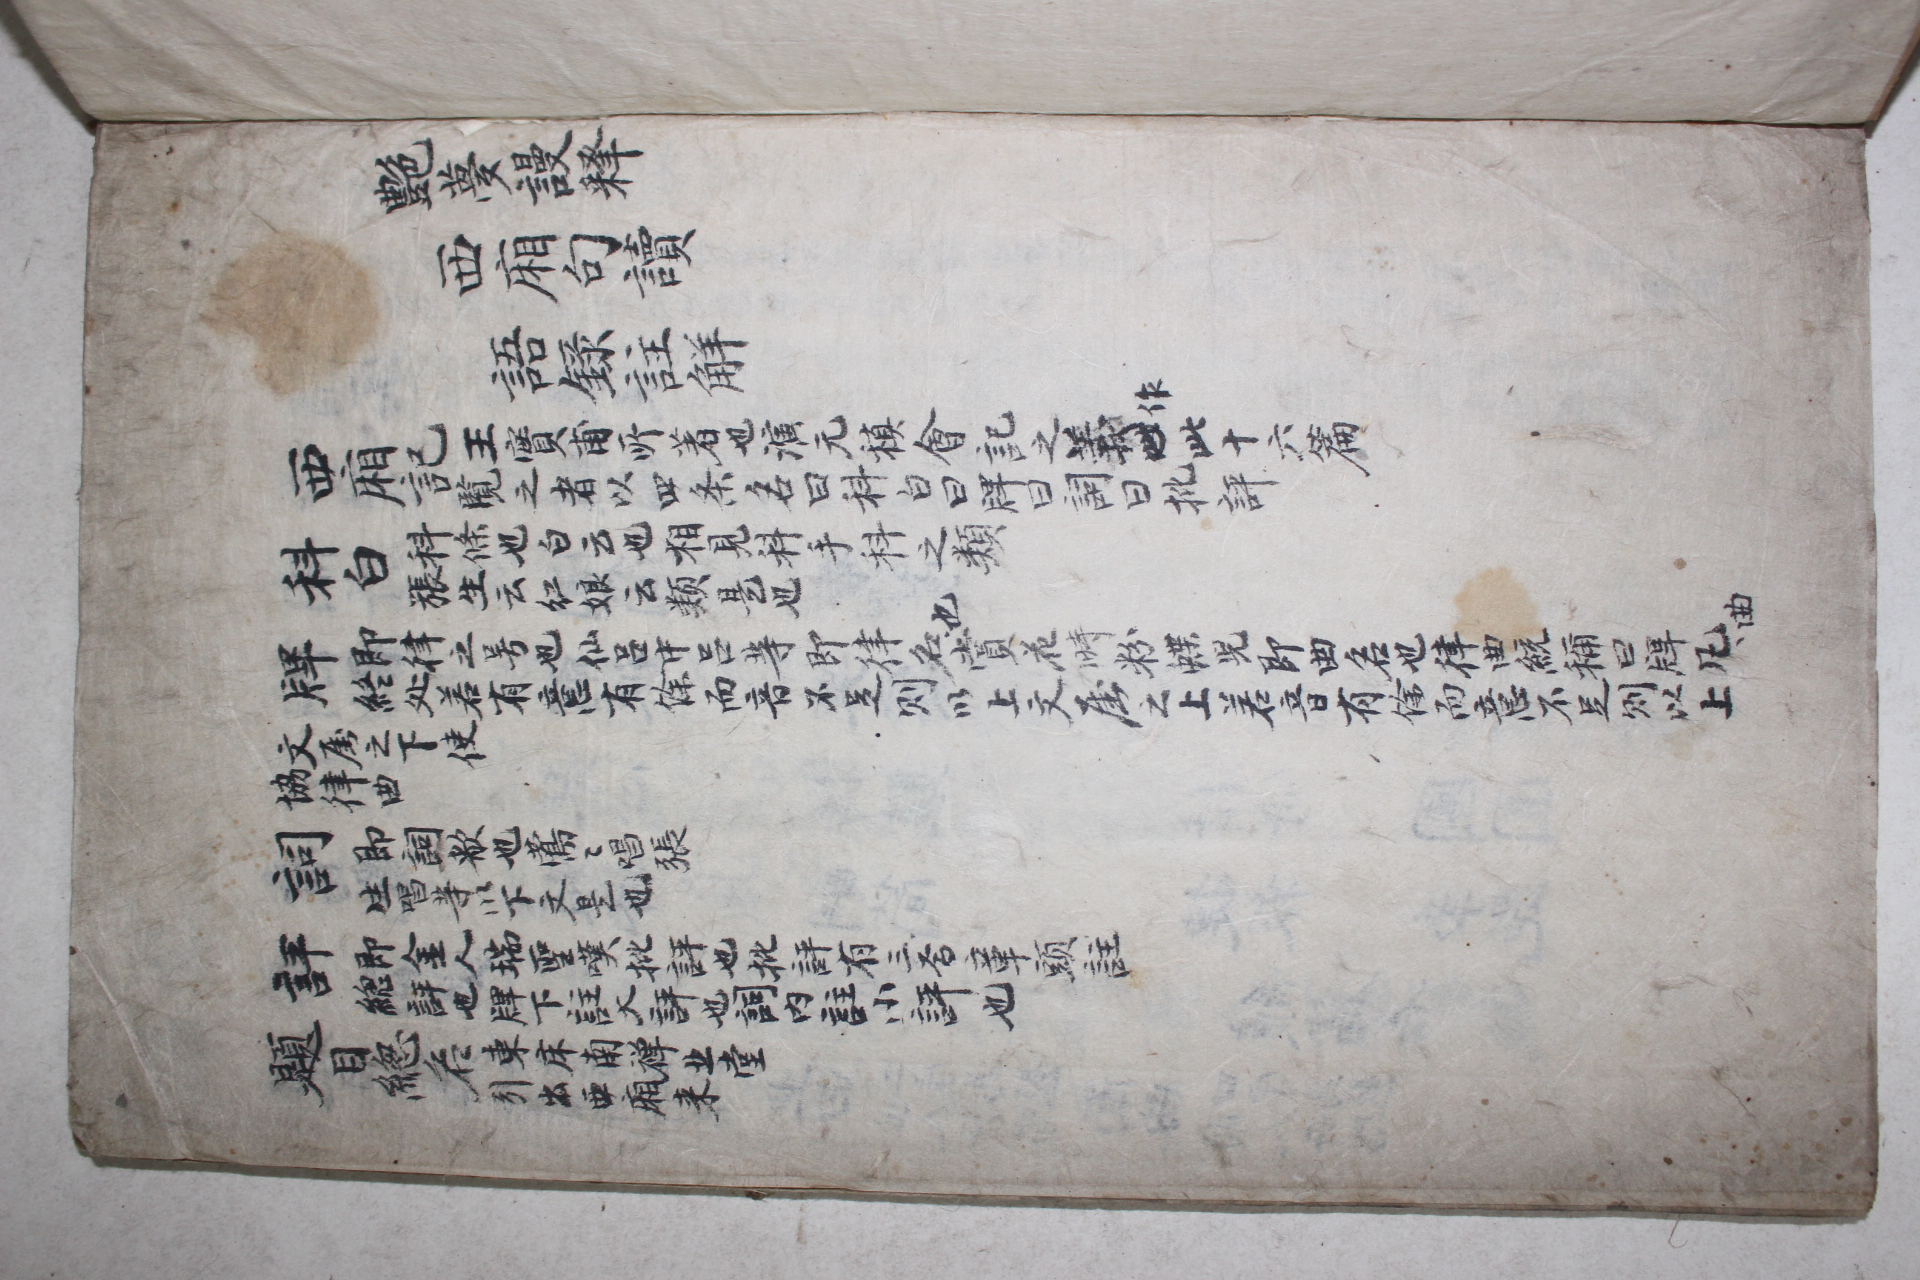 艷夢謾释
西廂句讀
語錄註解
西廂記
王實甫所著也演元稹會記之義作此十六篇
覧之者以四条名曰科白曰牌曰詞曰批評
科白
科條也白云也相見科手科之類
張生云紅娘云類是也
牌
即律之号也仙呂中呂等即律名也賞花時粉蝶児即曲名也律曲統称曰牌凡曲
終处若有意有餘而音不足則以上文属之上若音有餘而意不足則以上
文属之下使
協律曲
詞
即詞歌也鶯〻唱張
生唱等以下文是也
評
即金人瑞聖嘆批評也批評有三焉章頭註
總評也牌下註大評也詞內註小評也
題目總名
東床南禅北堂
引出西廂来